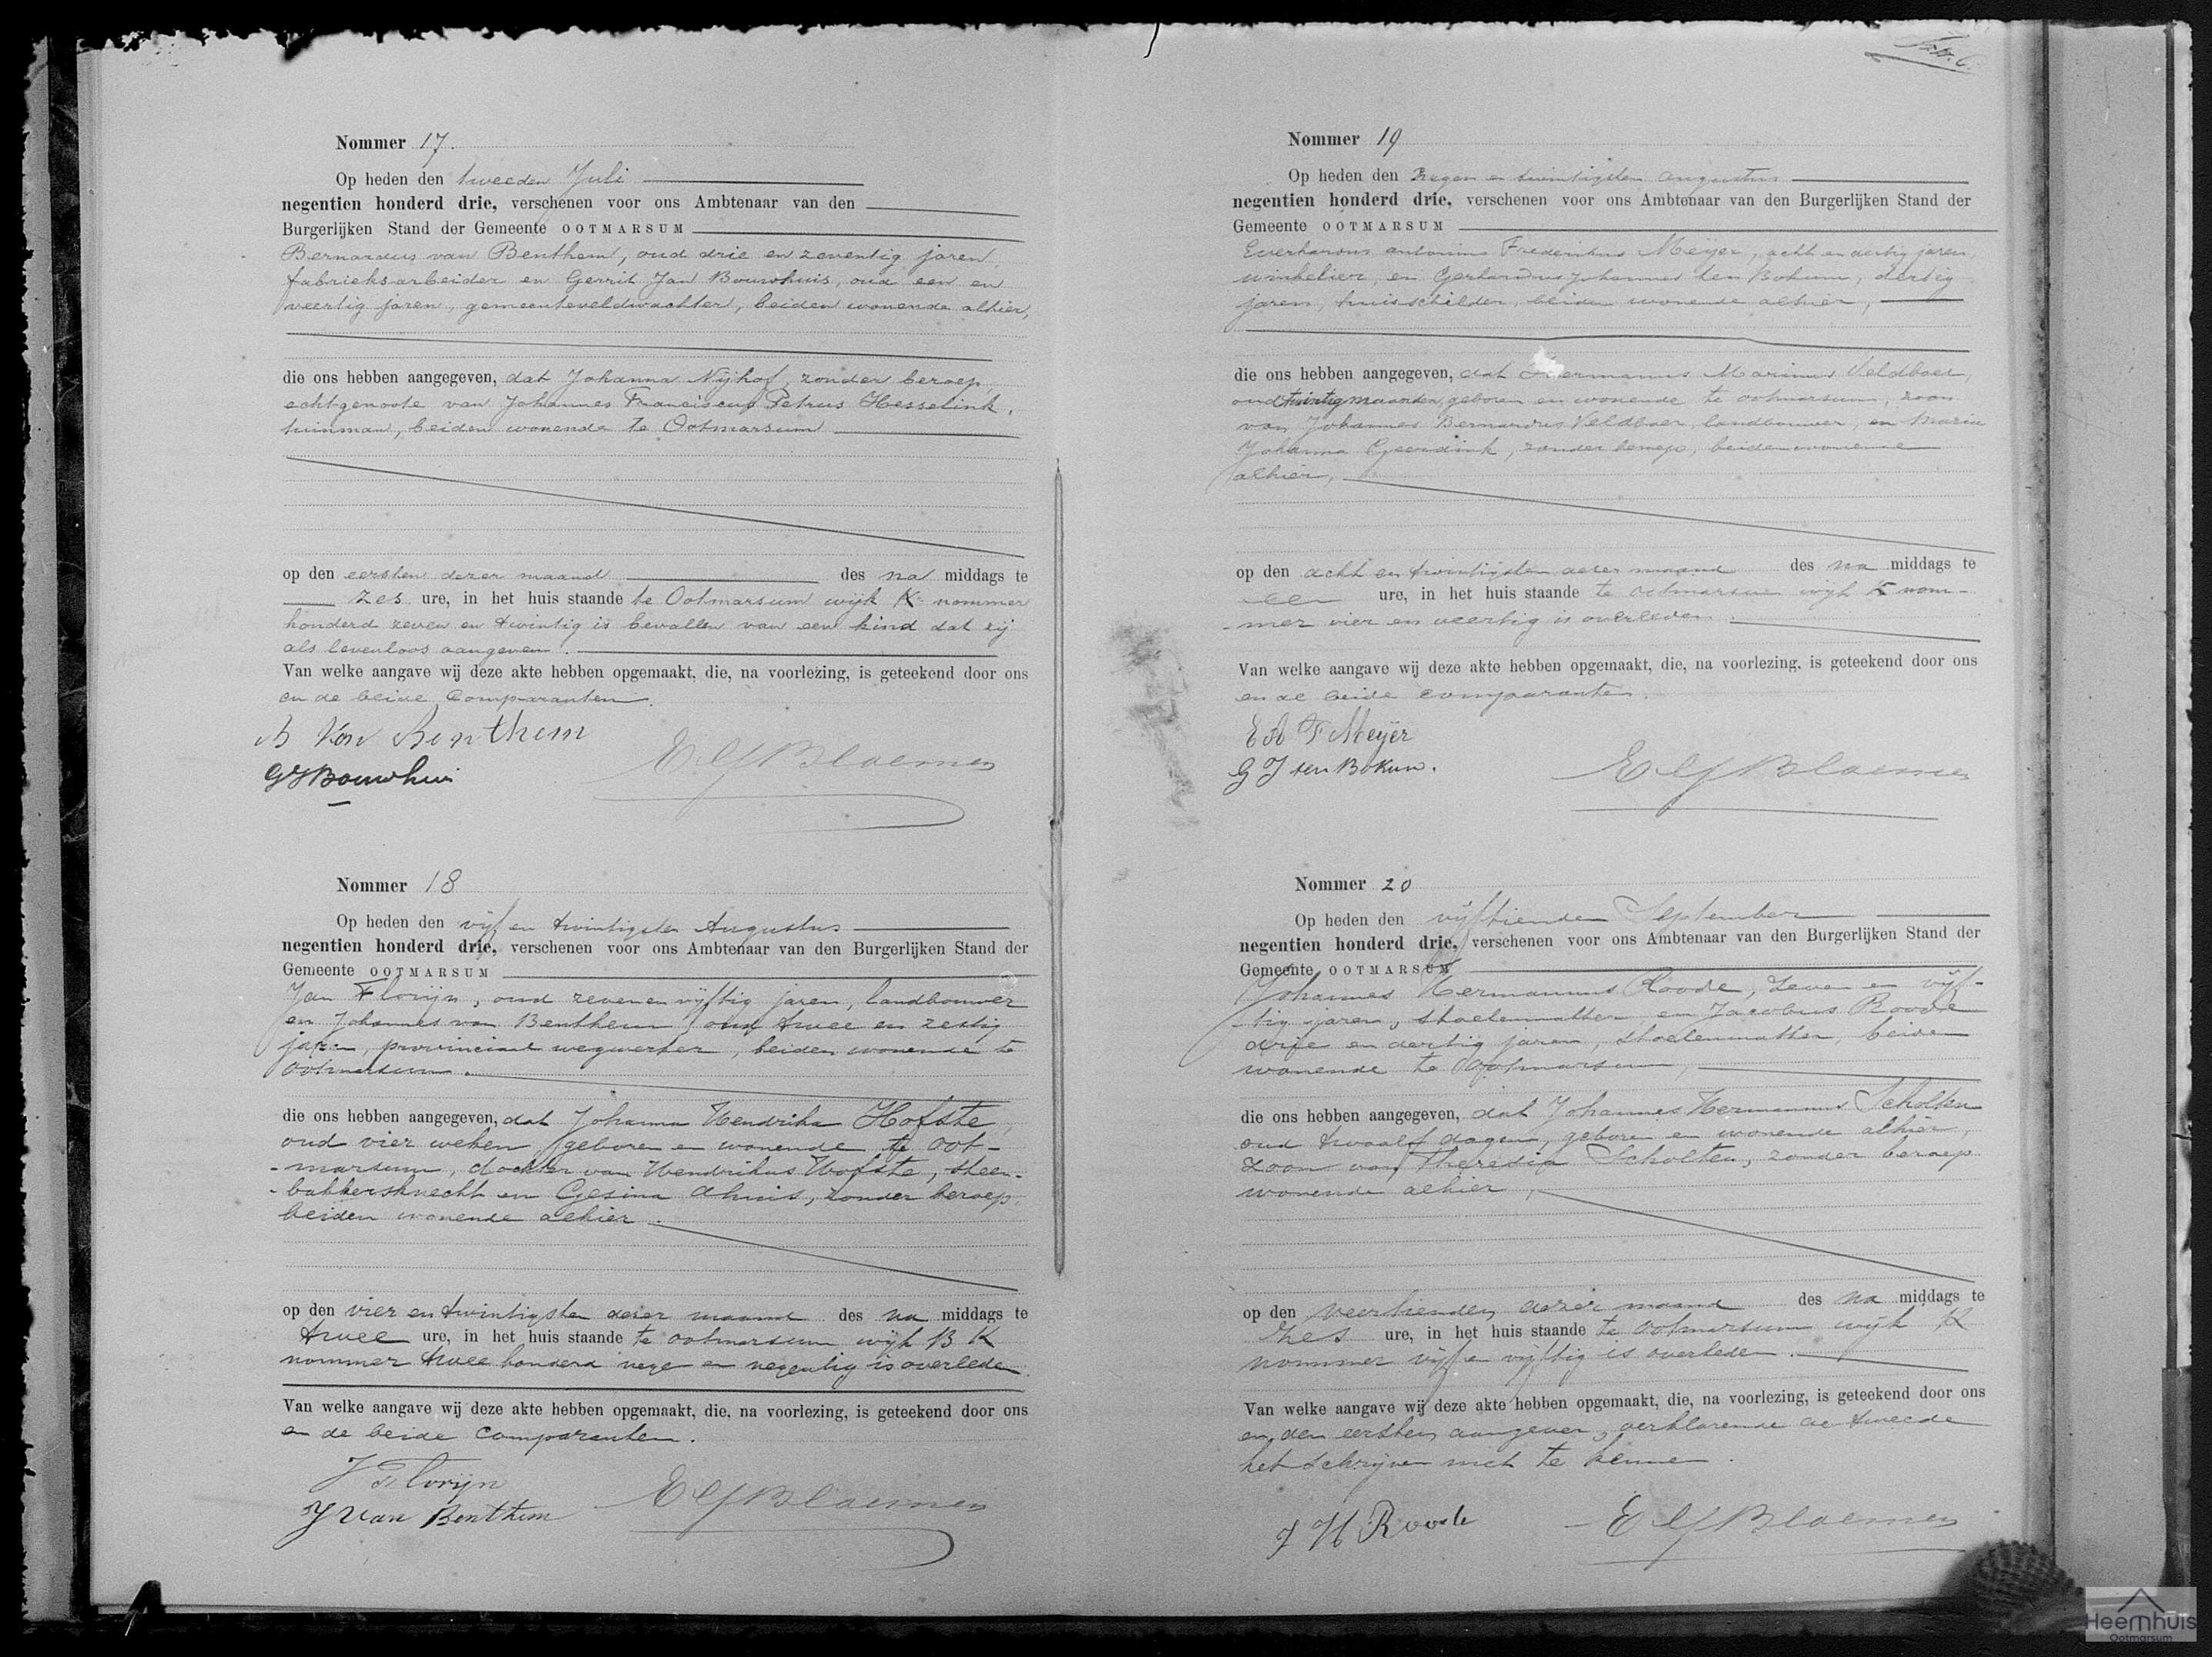 Nommer 17.
Op heden den tweeden Juli
negentien honderd drie, verschenen voor ons Ambtenaar van den
Burgerlijken Stand der Gemeente OOTMARSUM
Bernardus van Benthem, oud drie en zeventig jaren,
fabrieksarbeider en Gerrit Jan Bouwhuis, oud een en
veertig jaren, gemeenteveldwachter, beiden wonende alhier,
die ons hebben aangegeven, dat Johanna Nijhof, zonder beroep,
echtgenoote van Johannes Franciscus Petrus Hesselink,
tuinman, beiden wonende te Ootmarsum
op den eersten dezer maand des na middags te
zes ure, in het huis staande te Ootmarsum wijk K nommer
honderd zeven en twintig is bevallen van een kind dat zij
als levenloos aangeven.
Van welke aangave wij deze akte hebben opgemaakt, die, na voorlezing, is geteekend door ons
en de beide Comparanten.
B Van Benthem
GJ Bouwhuis
Bloemen
Nommer 18
Op heden den vijf en twintigsten Augustus
negentien honderd drie, verschenen voor ons Ambtenaar van den Burgerlijken Stand der
Gemeente OOTMARSUM
Jan Florijn, oud zeven en vijftig jaren, landbouwer
en Johannes van Benthem, oud twee en zestig
jaren, provinciaal wegwerker, beiden wonende te
Ootmarsum.
die ons hebben aangegeven, dat Johanna Hendrika Hofste,
oud vier weken, geboren en wonende te Oot-
-marsum, dochter van Hendrikus Hofste, steen-
-bakkersknecht en Gesina Ahuis, zonder beroep,
beiden wonende alhier.
op den vier en twintigsten dezer maand des na middags te
twee ure, in het huis staande te Ootmarsum wijk B K
nommer twee honderd negen en negentig is overleden.
Van welke aangave wij deze akte hebben opgemaakt, die, na voorlezing, is geteekend door ons
en de beide Comparanten.
J Florijn
J van Benthem
Bloemen
Nommer 19
Op heden den Negen en twintigsten Augustus
negentien honderd drie, verschenen voor ons Ambtenaar van den Burgerlijken Stand der
Gemeente OOTMARSUM
Everhardus Antonius Frederikus Meijer, acht en dertig jaren,
winkelier, en Gerhardus Johannes ten Bokum, dertig
jaren, huisschilder, beiden wonende alhier,
die ons hebben aangegeven, dat Hermannus Marinus Veldboer,
oud twintig maanden, geboren en wonende te Ootmarsum, zoon
van Johannes Bernardus Veldboer, landbouwer, en Maria
Johanna Geerdink, zonder beroep, beiden wonende
alhier,
op den acht en twintigsten dezer maand des na middags te
een ure, in het huis staande te Ootmarsum wijk K nom-
-mer vier en veertig is overleden.
Van welke aangave wij deze akte hebben opgemaakt, die, na voorlezing, is geteekend door ons
en de beide comparanten.
E A F Meijer
G J ten Bokum.
Bloemen
Nommer 20
Op heden den vijftienden September
negentien honderd drie, verschenen voor ons Ambtenaar van den Burgerlijken Stand der
Gemeente OOTMARSUM
Johannes Hermannus Roode, zeven en vijf-
-tig jaren, stoelenmatter en Jacobus Roode
drie en dertig jaren, stoelenmatter, beiden
wonende te Ootmarsum,
die ons hebben aangegeven, dat Johannes Hermannus Scholten
oud twaalf dagen, geboren en wonende alhier,
zoon van Theresia Scholten, zonder beroep
wonende alhier,
op den veertienden dezer maand des na middags te
zes ure, in het huis staande te Ootmarsum wijk K
nommer vijf en vijftig is overleden.
Van welke aangave wij deze akte hebben opgemaakt, die, na voorlezing, is geteekend door ons
en den eersten aangever, verklarende de tweede
het schrijven niet te kennen.
J H Roode
Bloemen
Heemhuis
Ootmarsum